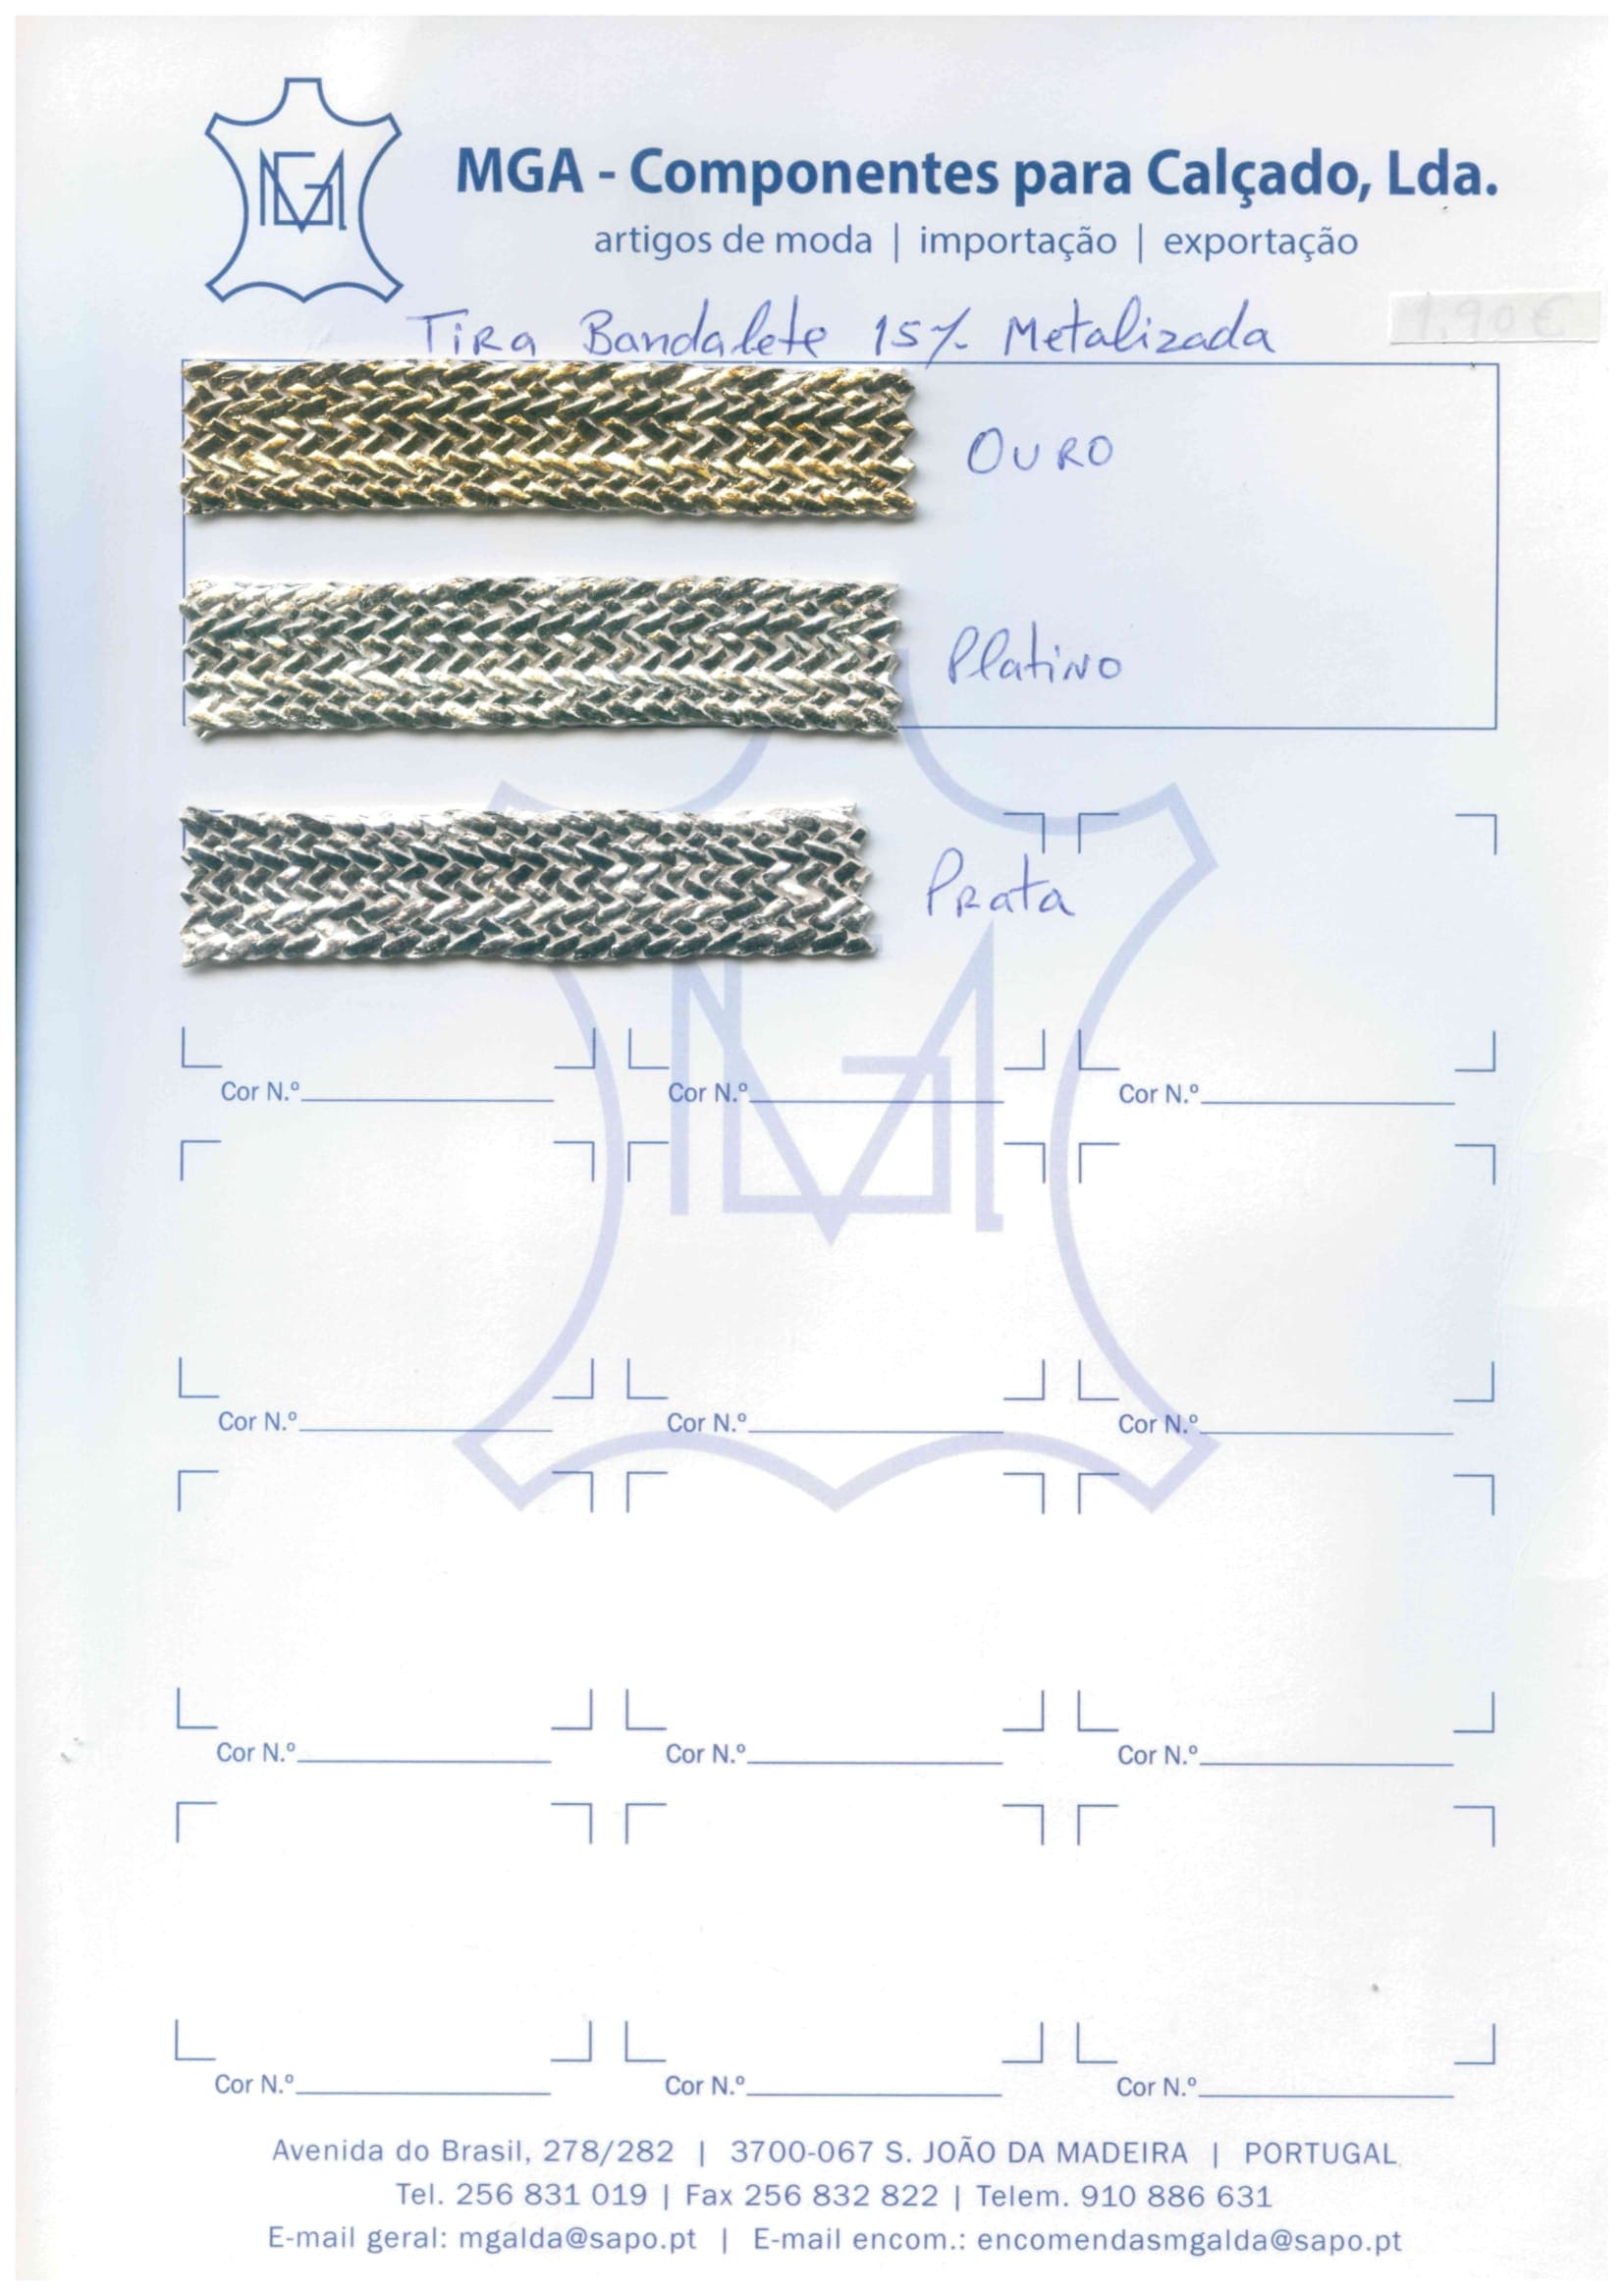 MGA - Componentes para Calçado, Lda.
artigos de moda | importação | exportação
1,90€
Tira Bandalete 15% Metalizada
OURO
Platino
Prata
Cor N.º Cor N.º Cor N.º
Cor N.º Cor N.º Cor N.º
Cor N.º Cor N.º Cor N.º
Cor N.º Cor N.º Cor N.º
Avenida do Brasil, 278/282 | 3700-067 S. JOÃO DA MADEIRA | PORTUGAL
Tel. 256 831 019 | Fax 256 832 822 | Telem. 910 886 631
E-mail geral: mgalda@sapo.pt | E-mail encom.: encomendasmgalda@sapo.pt